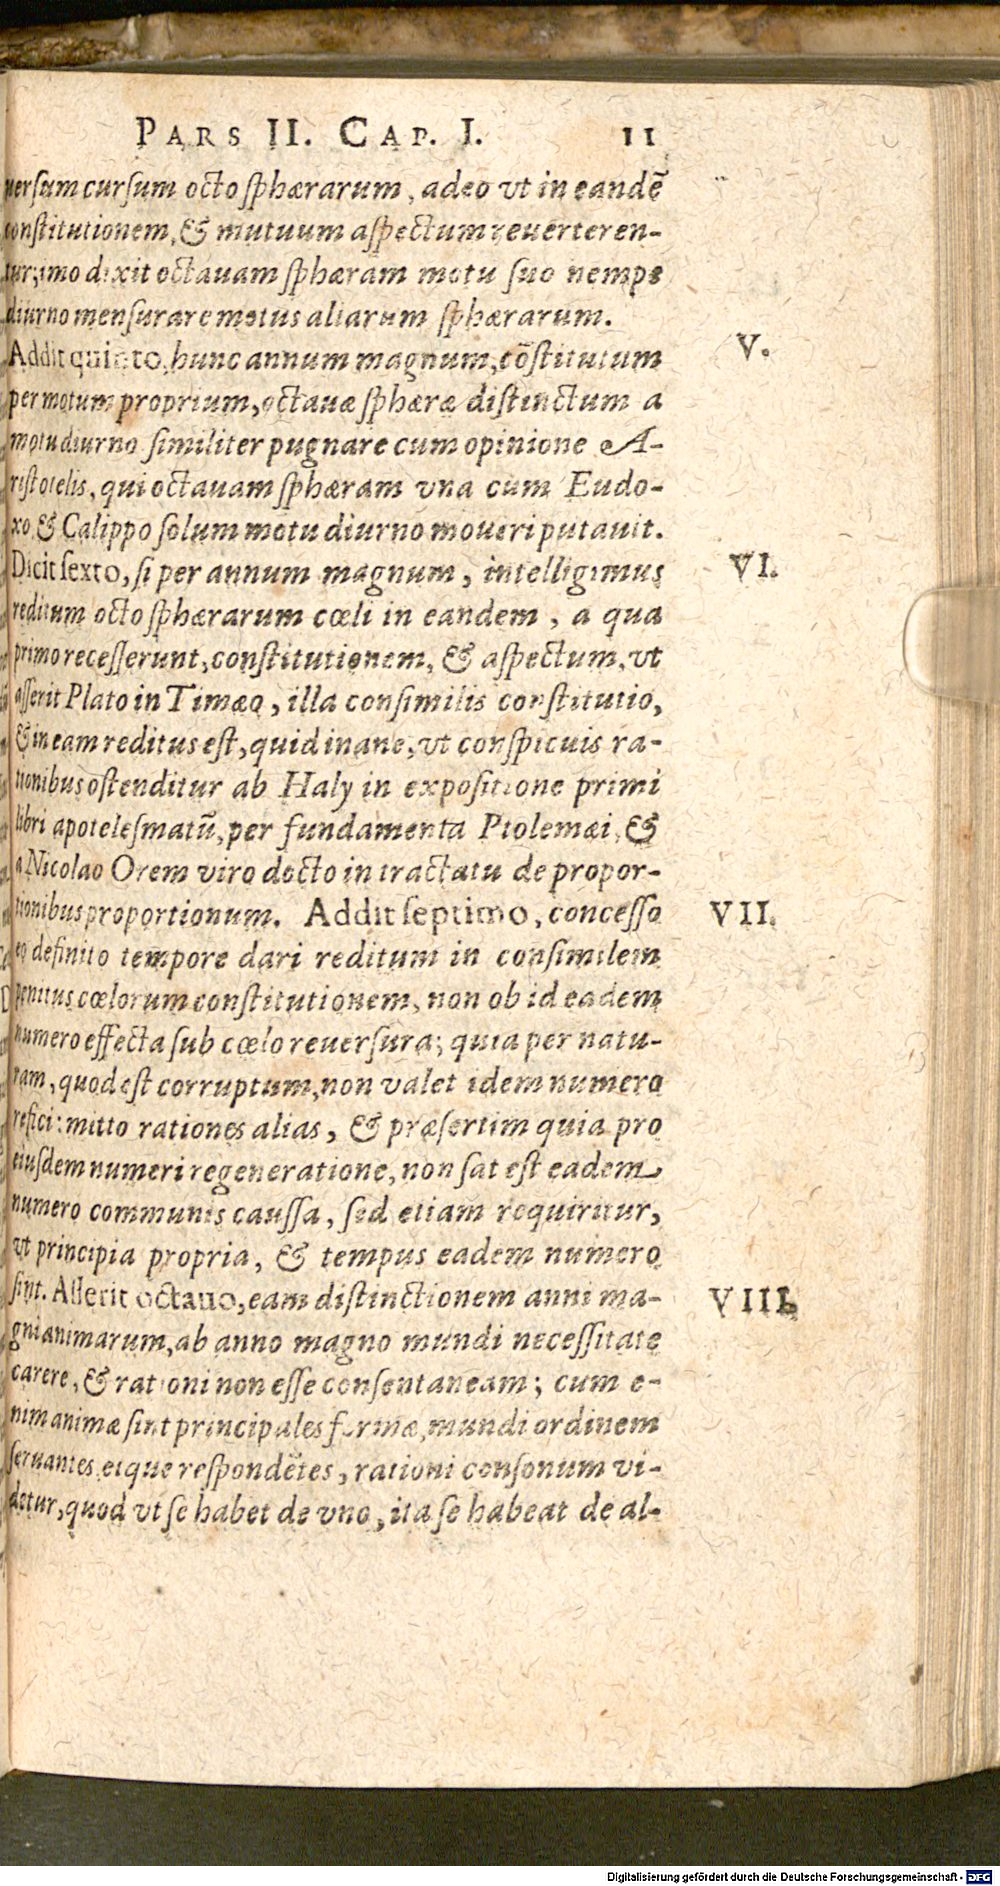 PARS II. CAP. I. 11
uersum cursum octo sphærarum, adeo vt in eandẽ
constitutionem, & mutuum aspectum reuerteren-
tur; imo dixit octauam sphæram motu suo nempe
diurno mensurare motus aliarum sphærarum.
Addit quinto, hunc annum magnum, cõstitutum
V.
per motum proprium, octauæ sphæræ distinctum a
motu diurno similiter pugnare cum opinione A-
ristotelis, qui octauam sphæram vna cum Eudo-
xo & Calippo solum motu diurno moueri putauit.
Dicit sexto, si per annum magnum, intelligimus
VI.
reditum octo sphærarum cœli in eandem, a qua
primo recesserunt, constitutionem, & aspectum, vt
asserit Plato in Timæo, illa consimilis constitutio,
& in eam reditus est, quid inane, vt conspicuis ra-
tionibus ostenditur ab Haly in expositione primi
libri apotelesmatũ, per fundamenta Ptolemæi, &
a Nicolao Orem viro docto in tractatu de propor-
tionibus proportionum. Addit septimo, concesso
VII.
eo definito tempore dari reditum in consimilem
penitus cœlorum constitutionem, non ob id eadem
numero effecta sub cœlo reuersura; quia per natu-
ram, quod est corruptum, non valet idem numero
refici: mitto rationes alias, & præsertim quia pro
eiusdem numeri regeneratione, non sat est eadem
numero communis caussa, sed etiam requiritur,
vt principia propria, & tempus eadem numero
sint. Asserit octauo, eam distinctionem anni ma-
VIII.
gni animarum, ab anno magno mundi necessitate
carere, & rationi non esse consentaneam; cum e-
nim animæ sint principales formæ, mundi ordinem
seruantes eique respondẽtes, rationi consonum vi-
detur, quod vt se habet de vno, ita se habeat de al-
Digitalisierung gefördert durch die Deutsche Forschungsgemeinschaft - DFG